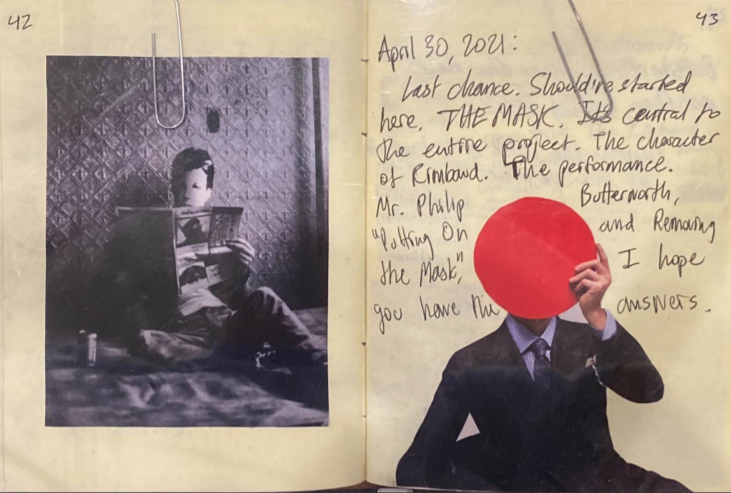 42
43
April 30, 2021:
Last chance. Should've started
here. THE MASK. It's central to
the entire project. The character
of Rimbaud. The performance.
Mr. Philip Butterworth,
"Putting On and Removing
the Mask," I hope
you have the answers.